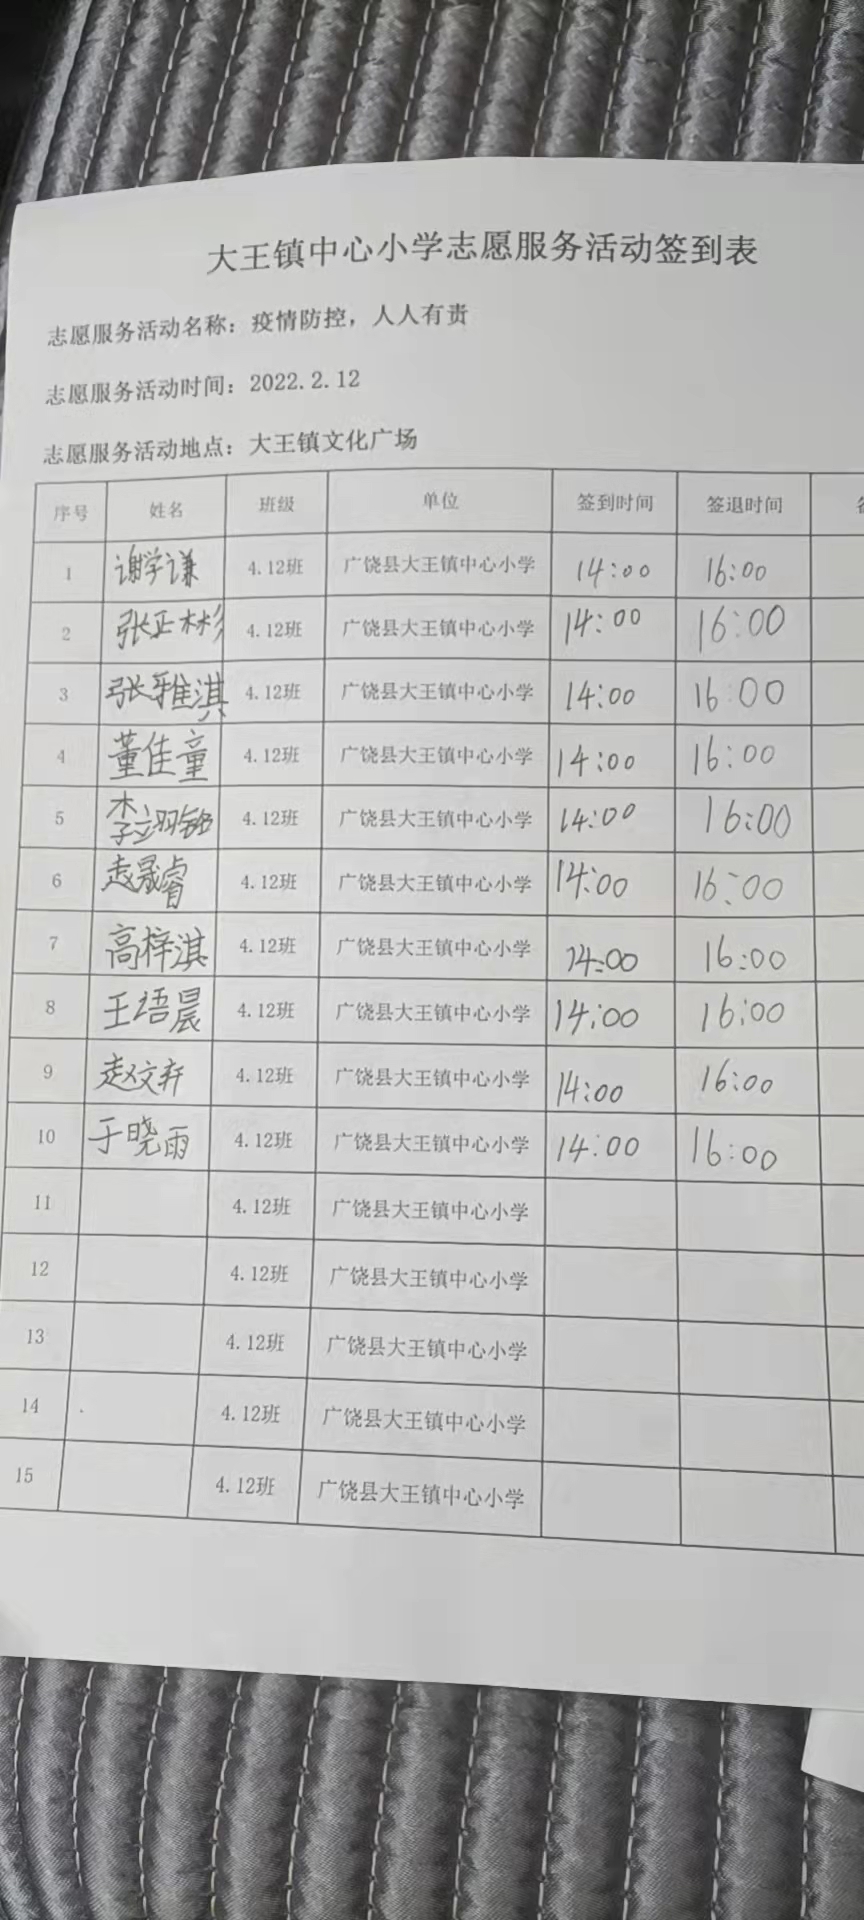 大王镇中心小学志愿服务活动签到表
志愿服务活动名称：疫情防控，人人有责
志愿服务活动时间：2022.2.12
志愿服务活动地点：大王镇文化广场
序号 姓名 班级 单位 签到时间 签退时间
1 谢学谦 4.12班 广饶县大王镇中心小学 14:00 16:00
2 张正彬 4.12班 广饶县大王镇中心小学 14:00 16:00
3 张雅淇 4.12班 广饶县大王镇中心小学 14:00 16:00
4 董佳童 4.12班 广饶县大王镇中心小学 14:00 16:00
5 4.12班 广饶县大王镇中心小学 14:00 16:00
6 赵晟睿 4.12班 广饶县大王镇中心小学 14:00 16:00
7 高梓淇 4.12班 广饶县大王镇中心小学 14:00 16:00
8 王语晨 4.12班 广饶县大王镇中心小学 14:00 16:00
9 4.12班 广饶县大王镇中心小学 14:00 16:00
10 于晓雨 4.12班 广饶县大王镇中心小学 14:00 16:00
11 4.12班 广饶县大王镇中心小学
12 4.12班 广饶县大王镇中心小学
13 4.12班 广饶县大王镇中心小学
14 4.12班 广饶县大王镇中心小学
15 4.12班 广饶县大王镇中心小学